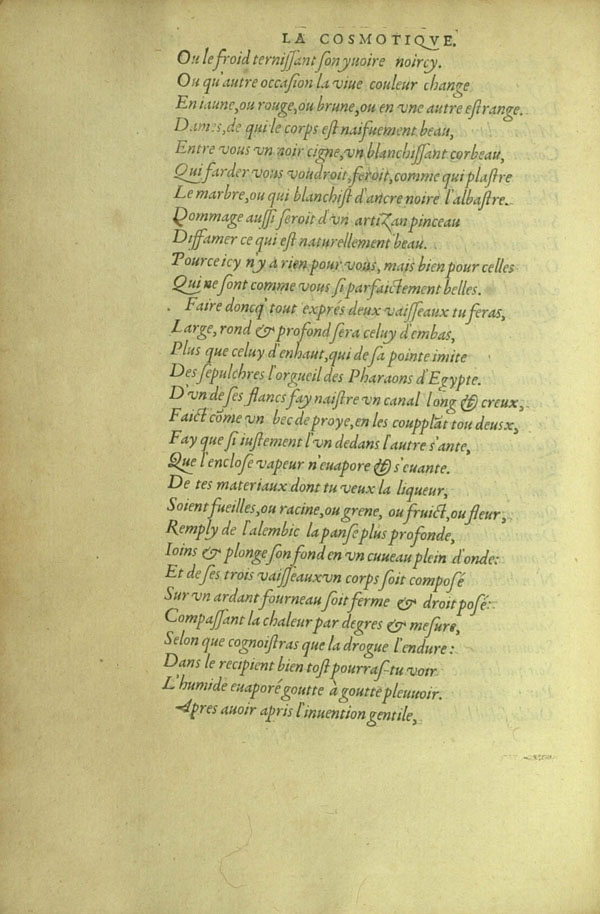 LA COSMOTIQVE.
Ou le froid terniſſant ſon yuoire noircy.
Ou qu'autre occaſion la viue couleur change
En iaune, ou rouge, ou brune, ou en vne autre eſtrange.
Dames, de qui le corps eſt naifuement beau,
Entre vous vn noir cigne, vn blanchiſſant corbeau,
Qui farder vous voudroit, feroit, comme qui plaſtre
Le marbre, ou qui blanchiſt d'ancre noire l'albaſtre.
Dommage auſſi ſeroit d'vn artiZan pinceau
Diffamer ce qui eſt naturellement beau.
Pource icy n'y a rien pour vous, mais bien pour celles
Qui ne ſont comme vous ſi parfaictement belles.
Faire doncq' tout exprés deux vaiſſeaux tu feras,
Large, rond & profond ſera celuy d'embas,
Plus que celuy d'enhaut, qui de ſa pointe imite
Des ſepulchres l'orgueil des Pharaons d'Egypte.
D'vn de ſes flancs fay naiſtre vn canal long & creux,
Faict cõme vn bec de proye, en les coupplãt tou deusx,
Fay que ſi iuſtement l'vn dedans l'autre s'ante,
Que l'encloſe vapeur n'euapore & s'euante.
De tes materiaux dont tu veux la liqueur,
Soient fueilles, ou racine, ou grene, ou fruict, ou fleur,
Remply de l'alembic la panſe plus profonde,
Ioins & plonge ſon fond en vn cuueau plein d'onde:
Et de ſes trois vaiſſeaux vn corps ſoit compoſé
Sur vn ardant fourneau ſoit ferme & droit poſé:
Compaſſant la chaleur par degres & meſure,
Selon que cognoiſtras que la drogue l'endure:
Dans le recipient bien toſt pourras-tu voir
L'humide euaporé goutte à goutte pleuuoir.
Apres auoir apris l'inuention gentile,